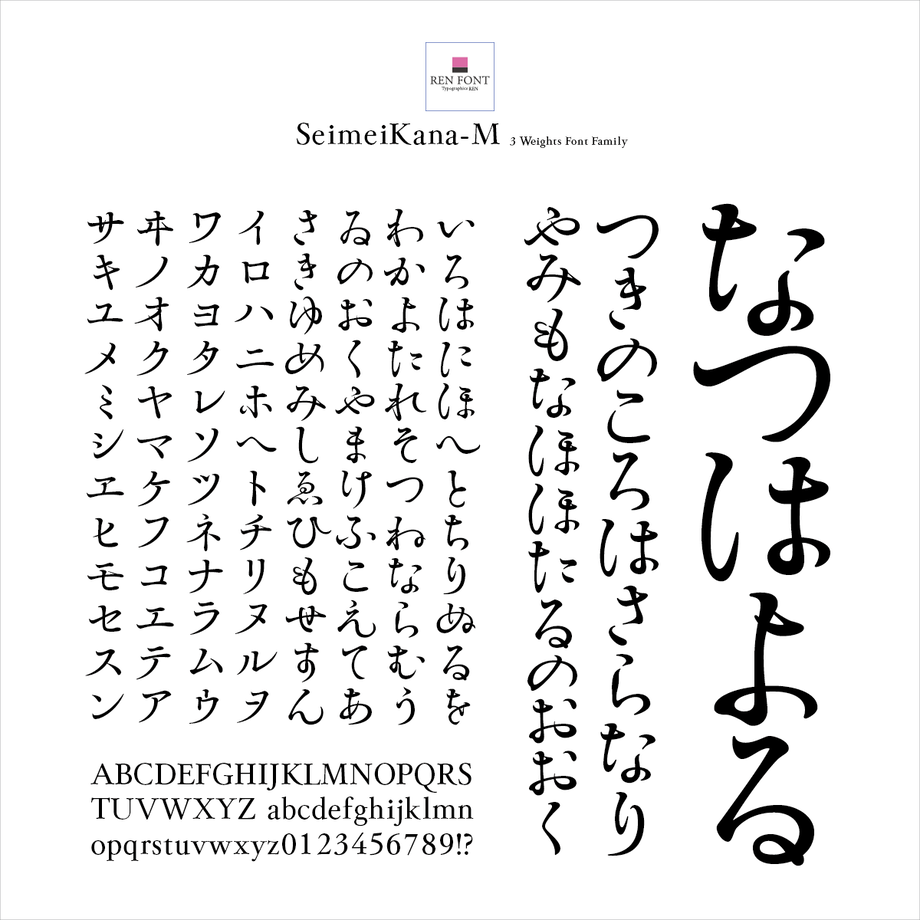 REN FONT
Typographics REN
SeimeiKana-M 3 Weights Font Family
なつはよる
つきのころはさらなり
やみもなほほたるのおおく
いろはにほへとちりぬるを
わかよたれそつねならむう
ゐのおくやまけふこえてあ
さきゆめみしゑひもせすん
イロハニホヘトチリヌルヲ
ワカヨタレソツネナラムウ
ヰノオクヤマケフコエテア
サキユメミシヱヒモセスン
ABCDEFGHIJKLMNOPQRS
TUVWXYZ abcdefghijklmn
opqrstuvwxyz0123456789!?